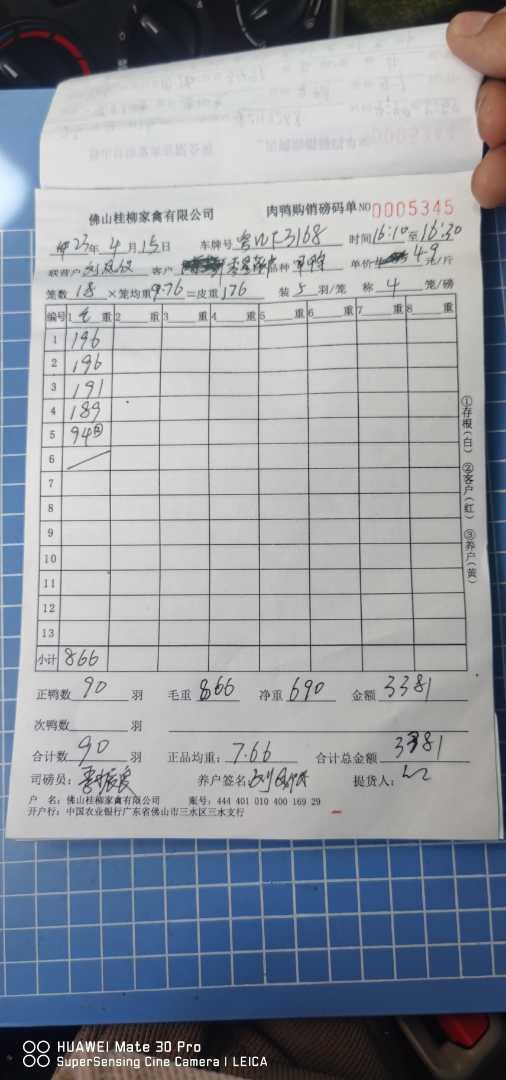 佛山桂柳家禽有限公司 肉鸭购销磅码单 NO 0005345
23年 4月 15日 车牌号 3168 时间 16:10 至 16:30
联营户 客户 品种 单价 4.9 元/斤
笼数 18 ×笼均重 9.76 =皮重 176 装 5 羽/笼 称 4 笼/磅
编号 1 毛 重 2 重 3 重 4 重 5 重 6 重 7 重 8 重
1 196
2 196
3 191
4 189
5 94②
6
7
8
9
10
11
12
13
小计 866
①存根(白) ②客户(红) ③养户(黄)
正鸭数 90 羽 毛重 866 净重 690 金额 3381
次鸭数 羽
合计数 90 羽 正品均重: 7.66 合计总金额 3381
司磅员: 养户签名: 提货人:
户 名: 佛山桂柳家禽有限公司 账号: 444 401 010 400 169 29
开户行: 中国农业银行广东省佛山市三水区三水支行
HUAWEI Mate 30 Pro
SuperSensing Cine Camera | LEICA